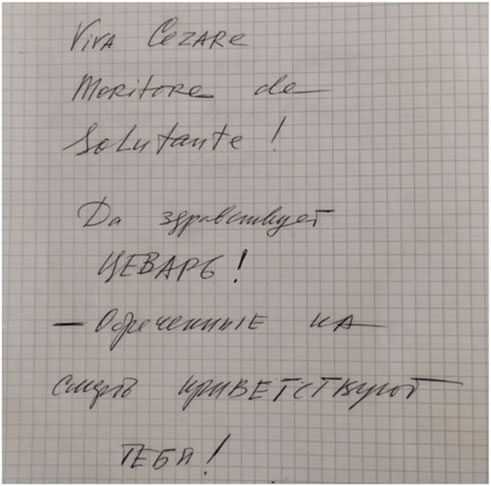 Viva Cezare
Moritore de
Solutante!
Да здравствует
ЦЕЗАРЬ!
— Обреченные на
смерть приветствуют
ТЕБЯ!